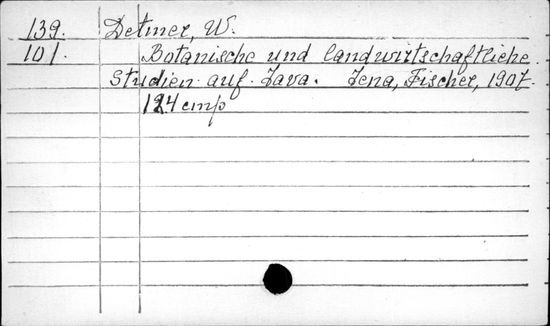 139. Detmer, W.
101. Botanische und landwirtschaftliche
Studien auf Java. Jena, Fischer, 1907.
124 cmp